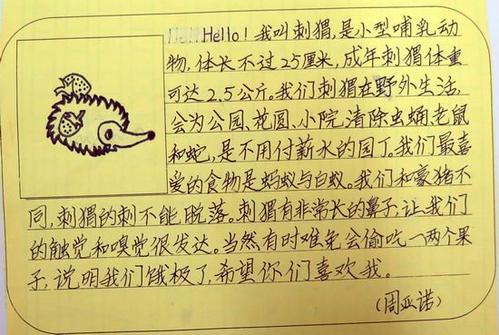 Hello! 我叫刺猬,是小型哺乳动
物,体长不过25厘米,成年刺猬体重
可达2.5公斤。我们刺猬在野外生活,
会为公园、花圆、小院,清除虫蛹老鼠
和蛇,是不用付薪水的园丁。我们最喜
爱的食物是蚂蚁与白蚁。我们和豪猪不
同,刺猬的刺不能脱落。刺猬有非常长的鼻子,让我们
的触觉和嗅觉很发达。当然有时难免会偷吃一两个果
子,说明我们饿极了,希望你们喜欢我。
(周亚诺)